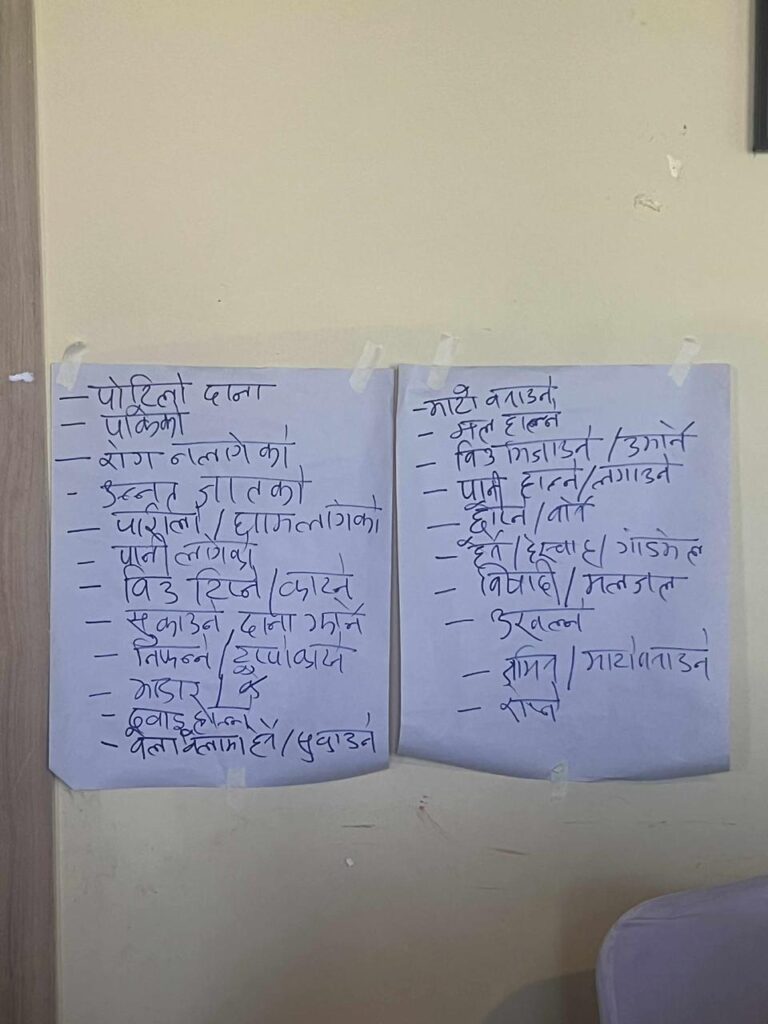 – पोटिलो दाना
– पाकेको
– रोग नलागेको
- उन्नत जातको
– पारिलो / घामलागेको
– पानी लागेको
– विउ टिप्ने / काट्ने
– सुकाउने दाना झार्ने
– निफन्ने / टुप्पोकाट्ने
– भडार /
– दवाइ हाल्ने
– वेला वेलामा हेर्ने / सुकाउने
– माटो वनाउने
– मल हाल्न
– विउ भिजाउने / उमार्ने
– पानी हाल्ने / लगाउने
– छर्पने / वोर्ने
– हेर्ने / हेरचाह / गोडमेल
– विषादी / मलजल
– उखल्ने
– जमिन / माटोवनाउने
– रोप्ने